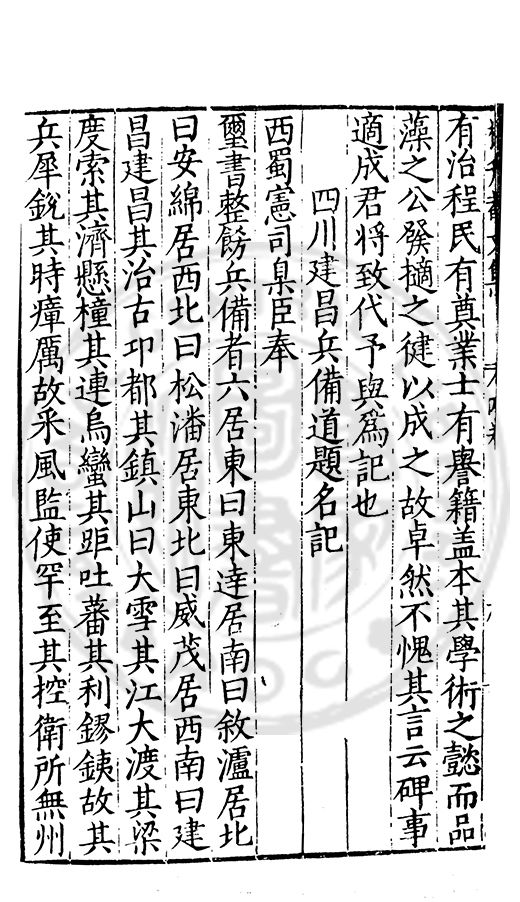 有治程民有奠業士有譽籍盖本其學術之懿而品
藻之公發擿之健以成之故卓然不愧其言云碑事
適成君将致代予與爲記也
四川建昌兵備道題名記
西蜀憲司臬臣奉
璽書整飭兵備者六居東曰東達居南曰敘瀘居北
曰安綿居西北曰松潘居東北曰威茂居西南曰建
昌建昌其治古邛都其鎮山曰大雪其江大渡其梁
度索其濟懸橦其連烏蠻其距吐蕃其利鏐銕故其
兵犀銳其時瘴厲故采風監使罕至其控衛所無州